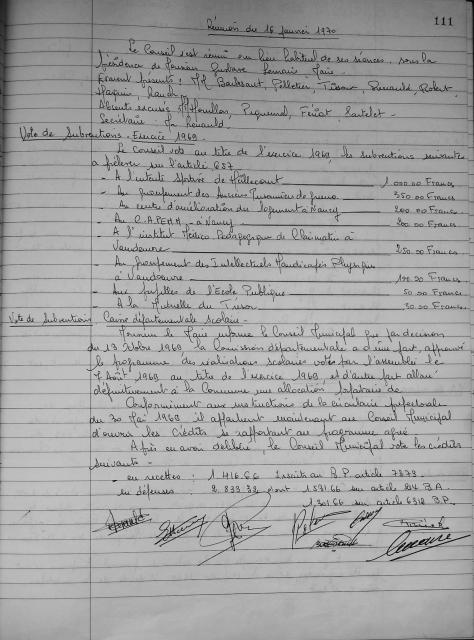 111
Réunion du 16 janvier 1970
Le Conseil s'est réuni au lieu habituel de ses séances, sous la
Présidence de Monsieur Gustave Lemaire Maire.
Etaient présents : MM Barbesant, Pelletier, Tissar, Renauld, Robert,
Absents excusés MM Mouillon, Piquemal, Feriot, Sartelet -
Secrétaire : Mr Renauld -
Vote de Subventions - Exercice 1969
Le Conseil vote au titre de l'exercice 1969, les subventions suivantes
à prélever sur l'article 657
- A l'entente Sportive de 1 000.00 Francs
- Au groupement des Anciens Prisonniers de guerre 350.00 Francs
- Au centre d'amélioration du logement à Nancy 200.00 Francs
- Au C.A.P.E.M.M - à Nancy 200.00 Francs
- A l'institut Médico Pédagogique de Clairmatin à
Vandoeuvre 250.00 Francs
- Au groupement des Intellectuels Handicapés Physiques
à Vandoeuvre 100.00 Francs
- Aux pupilles de l'Ecole Publique 50.00 Francs
- A la Mutuelle du Trésor 30.00 Francs
Vote de Subvention Caisse départementale scolaire -
Monsieur le Maire informe le Conseil Municipal que par décision
du 13 Octobre 1969 la Commission départementale a d'une part, approuvé
le programme des réalisations scolaires voté par l'assemblée le
7 Août 1969 au titre de l'exercice 1969, et d'autre part alloué
définitivement à la Commune une allocation forfaitaire de
Conformément aux instructions de la circulaire préfectorale
du 30 Mai 1969 il appartient maintenant au Conseil Municipal
d'ouvrir les Crédits se rapportant au programme agréé
Après en avoir délibéré, le Conseil Municipal vote les crédits
suivants -
- en recettes : 1.416.66 Inscrits au B.P. article 7373.
en dépenses : 2.833.32 dont 1531.66 sur article 214 B.A.
1.301.66 sur article 6312 B.P.